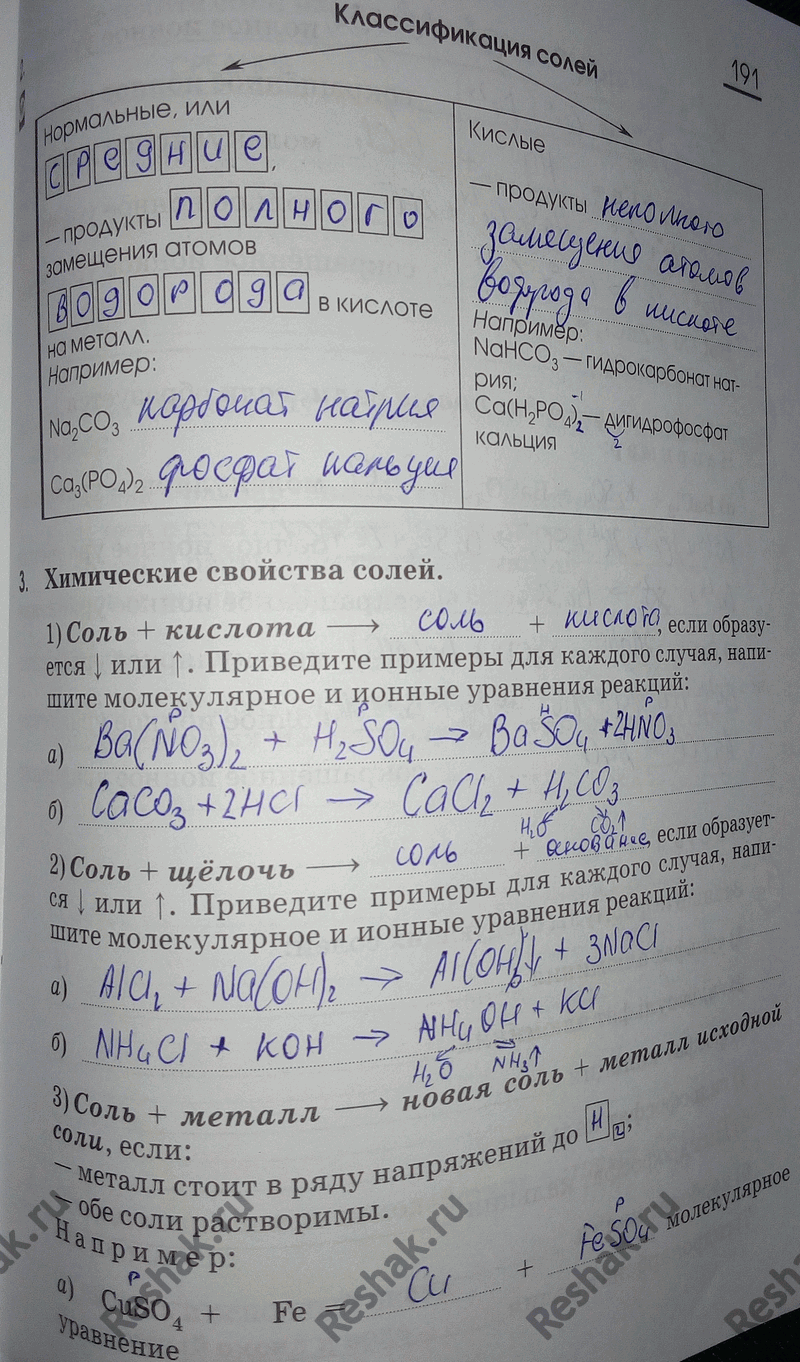 Классификация солей
191
Нормальные, или
средние,
— продукты полного
замещения атомов
водорода в кислоте
на металл.
Например:
Na2CO3 карбонат натрия
Ca3(PO4)2 фосфат кальция
Кислые
— продукты неполного
замещения атомов
водорода в кислоте
Например:
NaHCO3 — гидрокарбонат нат-
рия;
Ca(H2PO4)2 — дигидрофосфат
кальция
3. Химические свойства солей.
1) Соль + кислота ⟶ соль + кислота, если образу-
ется ↓ или ↑. Приведите примеры для каждого случая, напи-
шите молекулярное и ионные уравнения реакций:
а) Ba(NO3)2 + H2SO4 → BaSO4 + 2HNO3
б) CaCO3 + 2HCl → CaCl2 + H2CO3
H2O CO2↑
2) Соль + щёлочь ⟶ соль + основание, если образует-
ся ↓ или ↑. Приведите примеры для каждого случая, напи-
шите молекулярное и ионные уравнения реакций:
а) AlCl2 + Na(OH)2 → Al(OH)↓ + 3NaCl
б) NH4Cl + KOH → NH4OH + KCl
H2O NH3↑
3) Соль + металл ⟶ новая соль + металл исходной
соли, если:
— металл стоит в ряду напряжений до H2;
— обе соли растворимы.
Например:
а) CuSO4 + Fe = Cu + FeSO4 молекулярное
уравнение
Reshak.ru
Reshak.ru
Reshak.ru
Reshak.ru